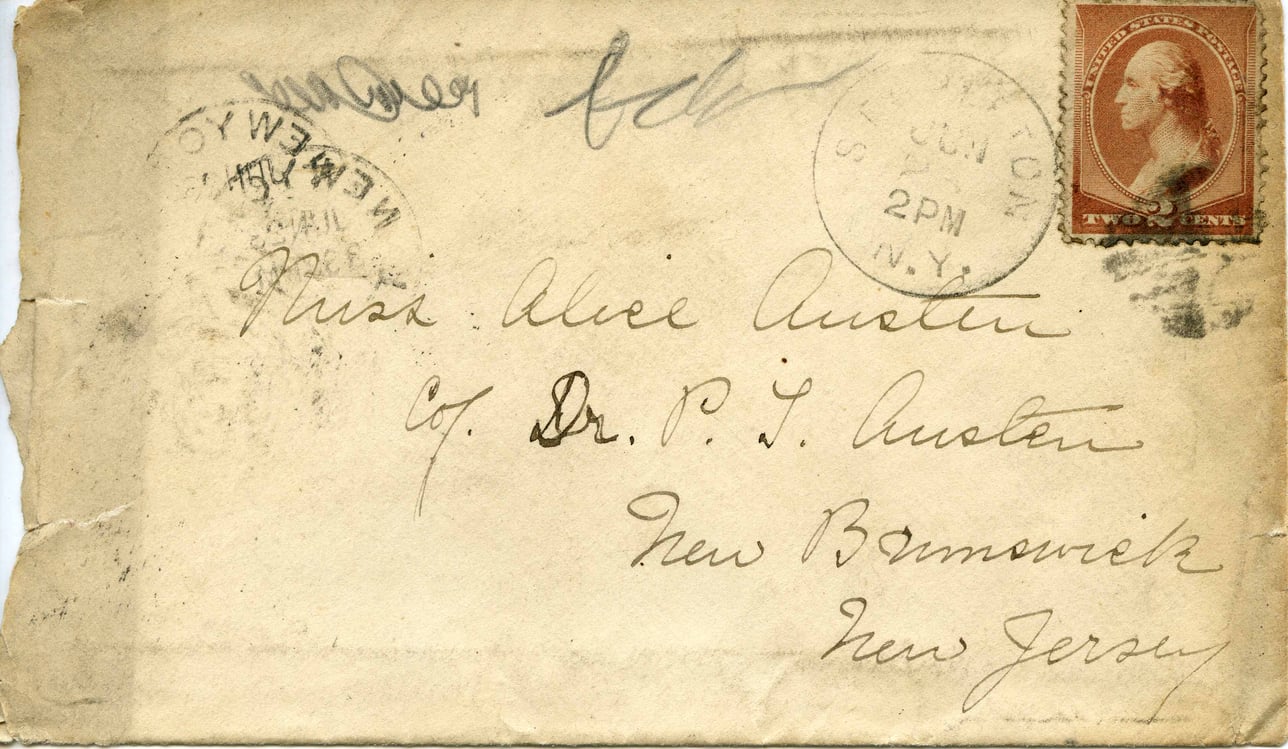 UNITED STATES POSTAGE
TWO 2 CENTS
JUN
2PM
N.Y.
NEW YO
NEW
Miss Alice Austen
C/. Dr. P. T. Austen
New Brunswick
New Jersey